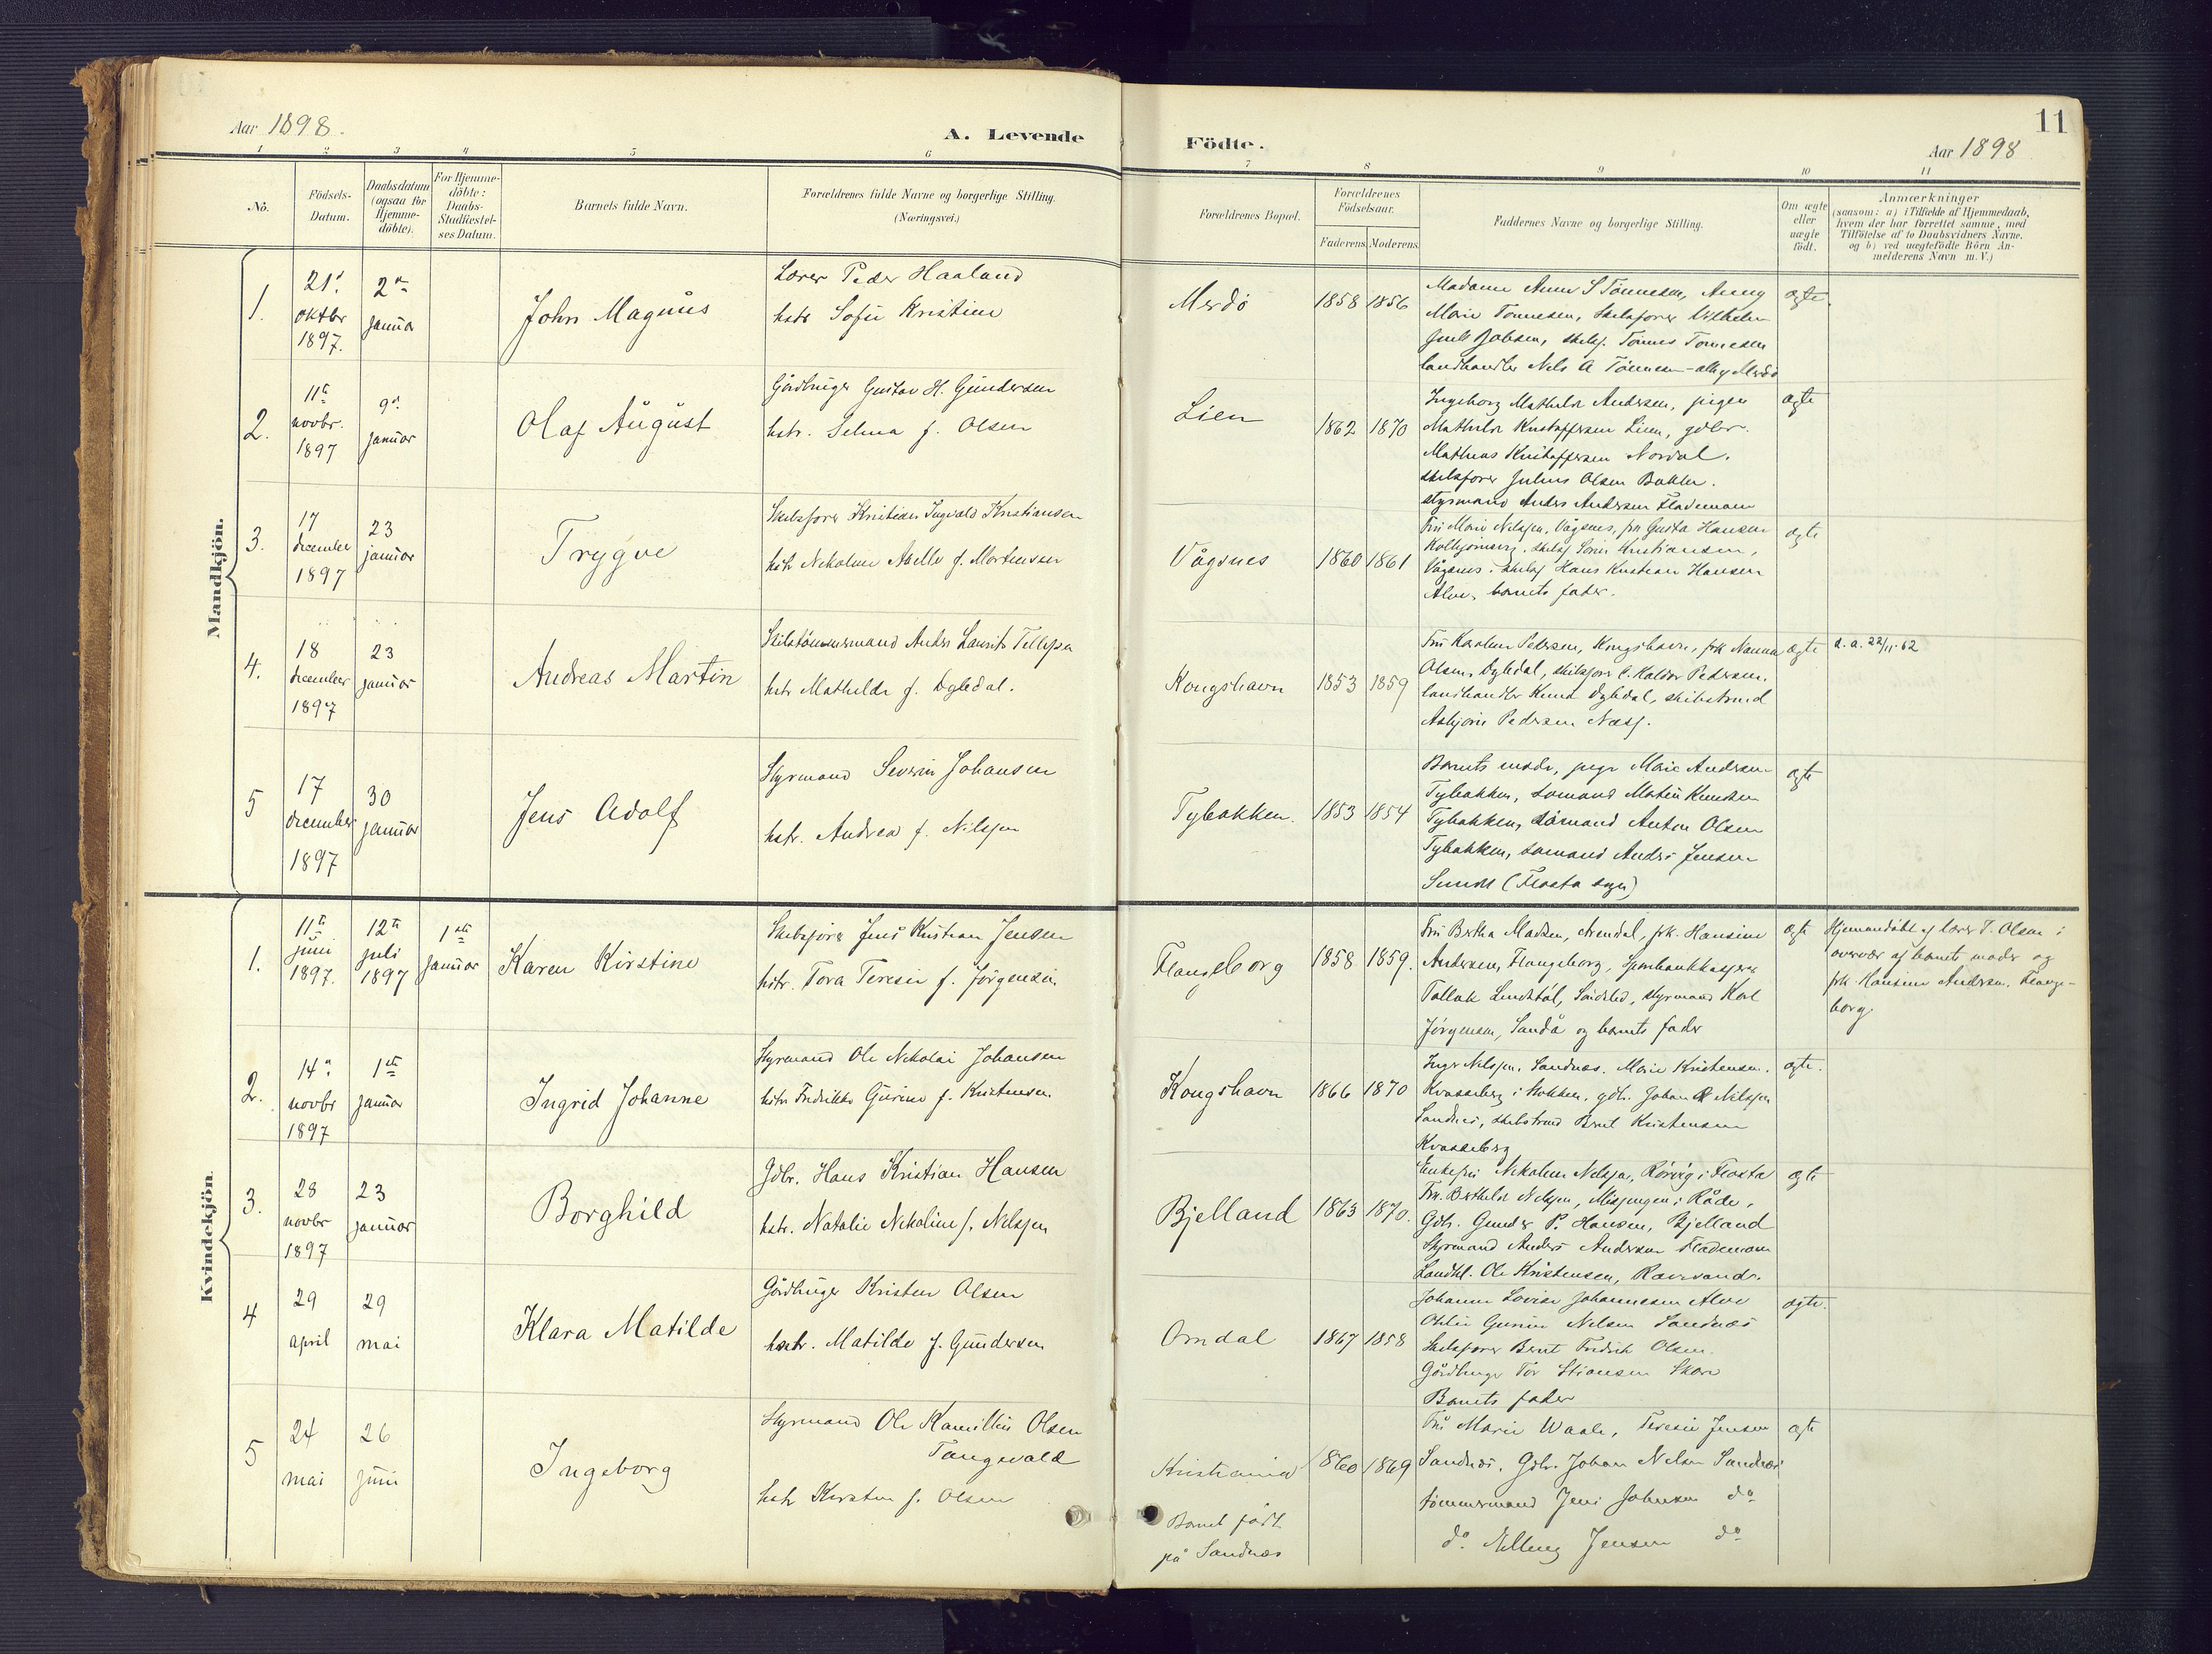 Aar 1898.
A. Levende
Födte.
11
Aar 1898
1 2 3 4 5 6 7 8 9 10 11
No.
Födsels-
Datum.
Daabsdatum
(ogsaa for
Hjemme-
döbte).
For Hjemme-
döbte:
Daabs-
Stadfæstel-
ses Datum.
Barnets fulde Navn.
Forældrenes fulde Navne og borgerlige Stilling.
(Næringsvei.)
Forældrenes Bopæl.
Forældrenes
Födselsaar.
Faderens Moderens
Faddernes Navne og borgerlige Stilling.
Om ægte
eller
uægte
födt.
Anmærkninger
(saasom: a) i Tilfælde af Hjemmedaab,
hvem der har forrettet samme, med
Tilföielse af to Daabsvidners Navne.
og b) ved uægtefödte Börn An-
melderens Navn m. V.)
Mandkjön.
1.
21'
oktbr
1897.
2
januar
John Magnus
Lærer Peder Haaland
hstr Sofie Kristine
Merdö
1858 1856
Madame Anne S Tönnesen, Anny
Marie Tönnesen,
Tönnes Tönnesen
landhandler Nils A Tönnesen - alle af Merdö
ægte
2.
11te
novbr.
1897
9
januar
Olaf August
Gårdbruger Gustav H. Gundersen
hstr. Selma f. Olsen
Lien
1862 1870
Ingeborg Mathilde Andersen, pigen
Mathilde Kristoffersen Lien, gdbr.
Mathias Kristoffersen Nordal.
skibsförer Julius Olsen
styrmand Anders Andersen Flademoen
ægte
3.
17
december
1897
23
januar
Trygve
Skibsförer Kristian Ingvald Kristiansen
hstr Nikoline Abelle f. Mortensen
Vågsnes
1860 1861
Fru Marie Nilsen, Vågsnes, frk Gusta Hansen
Kolbjörnsvig, skibsf Kristiansen,
Vågsnes, skibsf Hans Kristian Hansen
Alve, barnets fader.
ægte
4.
18
december
1897
23
januar
Andreas Martin
Skibstömmermand Anders Laurits Tellefsen
hstr Mathilde f. Dybdal.
Kongshavn
1853 1859
Fru Karoline Pedersen, Kongshavn, frk Nanna
Olsen, Dybdal, skibsförer C. Halvor Pedersen,
landhandler Knud Dybdal, skibstmd
Asbjörn Pedersen Næss.
ægte
d. a. 22/11-62
5
17
december
1897
30
januar
Jens Adolf
Styrmand Severin Johansen
hstr. Andrea f. Nilsen
Tybakken.
1853 1854
Barnets moder, pige Marie Andersen
Tybakken, sömand Martin Knudsen
Tybakken, sömand Anton Olsen
Tybakken, sömand Anders Jensen
(Flosta sogn)
ægte
Kvindekjön
1.
11te
juni
1897.
12te
juli
1897
1ste
januar
Karen Kirstine
Skibsförer Jens Kristian Jensen
hstr. Tora Teresie f. Jörgensen
Flangeborg
1858 1859.
Fru Berthe Madsen, Arendal, frk. Hansine
Andersen, Flangeborg, Sparebankkasserer
Tallak Lindtdal, styrmand Karl
Jörgensen, Sandå og barnets fader
ægte
Hjemmedöbt af lærer T. Olsen i
overvær af barnets moder og
frk Hansine Andersen, Flange-
borg
2.
14
novbr
1897
1ste
januar
Ingrid Johanne
Styrmand Ole Nikolai Johansen
hstr Fredrikke Gurine f. Kristensen
Kongshavn
1866 1870
Inger Nilsen, Sandnæs, Marie Kristensen.
Kvasseberg i Stokken, gdb. Johan Nilsen
Sandnes, skibstmd Bent Kristensen
Kvasseberg
ægte.
3.
28
novbr
1897
23
januar
Borghild
Gdbr. Hans Kristian Hansen
hstr. Natalie Nikoline f. Nilsen
Bjelland
1863 1870.
Enkefru Nikoline Nilsen, Rörvig i Flosta
Frk. Berthilde Nilsen, i Råde,
Gdb. Gunder P. Hansen, Bjelland
Styrmand Anders Andersen Flademoen
Landhl. Ole Kristensen, Rævesand.
ægte
4
29
april
29
mai
Klara Matilde
Gårdbruger Kristen Olsen
hstr. Matilde f. Gundersen
Omdal
1867 1858
Johanne Lovise Johannesen Alve
Othilie Gurine Nilsen Sandnæs
Skibsförer Bent Fredrik Olsen
Gårdbruger Tor Stiansen Skare
Barnets fader
ægte.
5
24
mai
26
juni
Ingeborg
Styrmand Ole Kamillus Olsen
Tangevald
hstr Kirsten f. Olsen
Kristiania
Barnet födt
på Sandnæs
1860 1869
Fru Marie Waale, Teresie Jensen
Sandnæs, Gdb. Johan Nilsen Sandnæs
tömmermand Jens Johnsen do
do. Jensen do
ægte